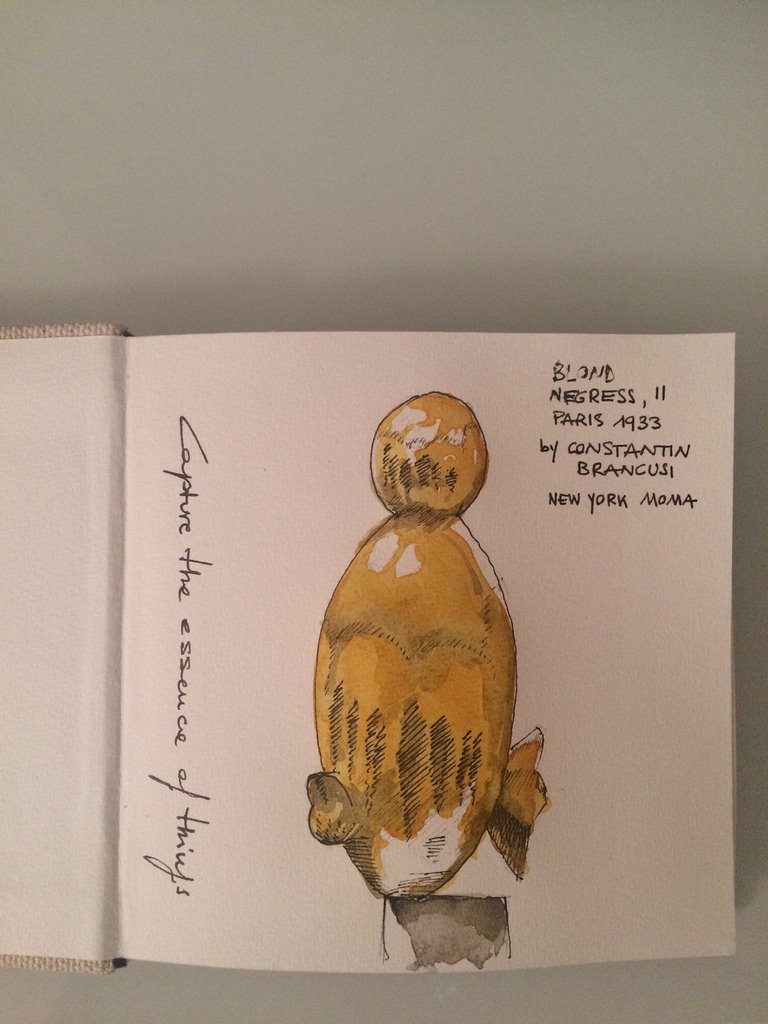 BLOND
NEGRESS, II
PARIS 1933
by CONSTANTIN
BRANCUSI
NEW YORK MOMA
Capture the essence of things